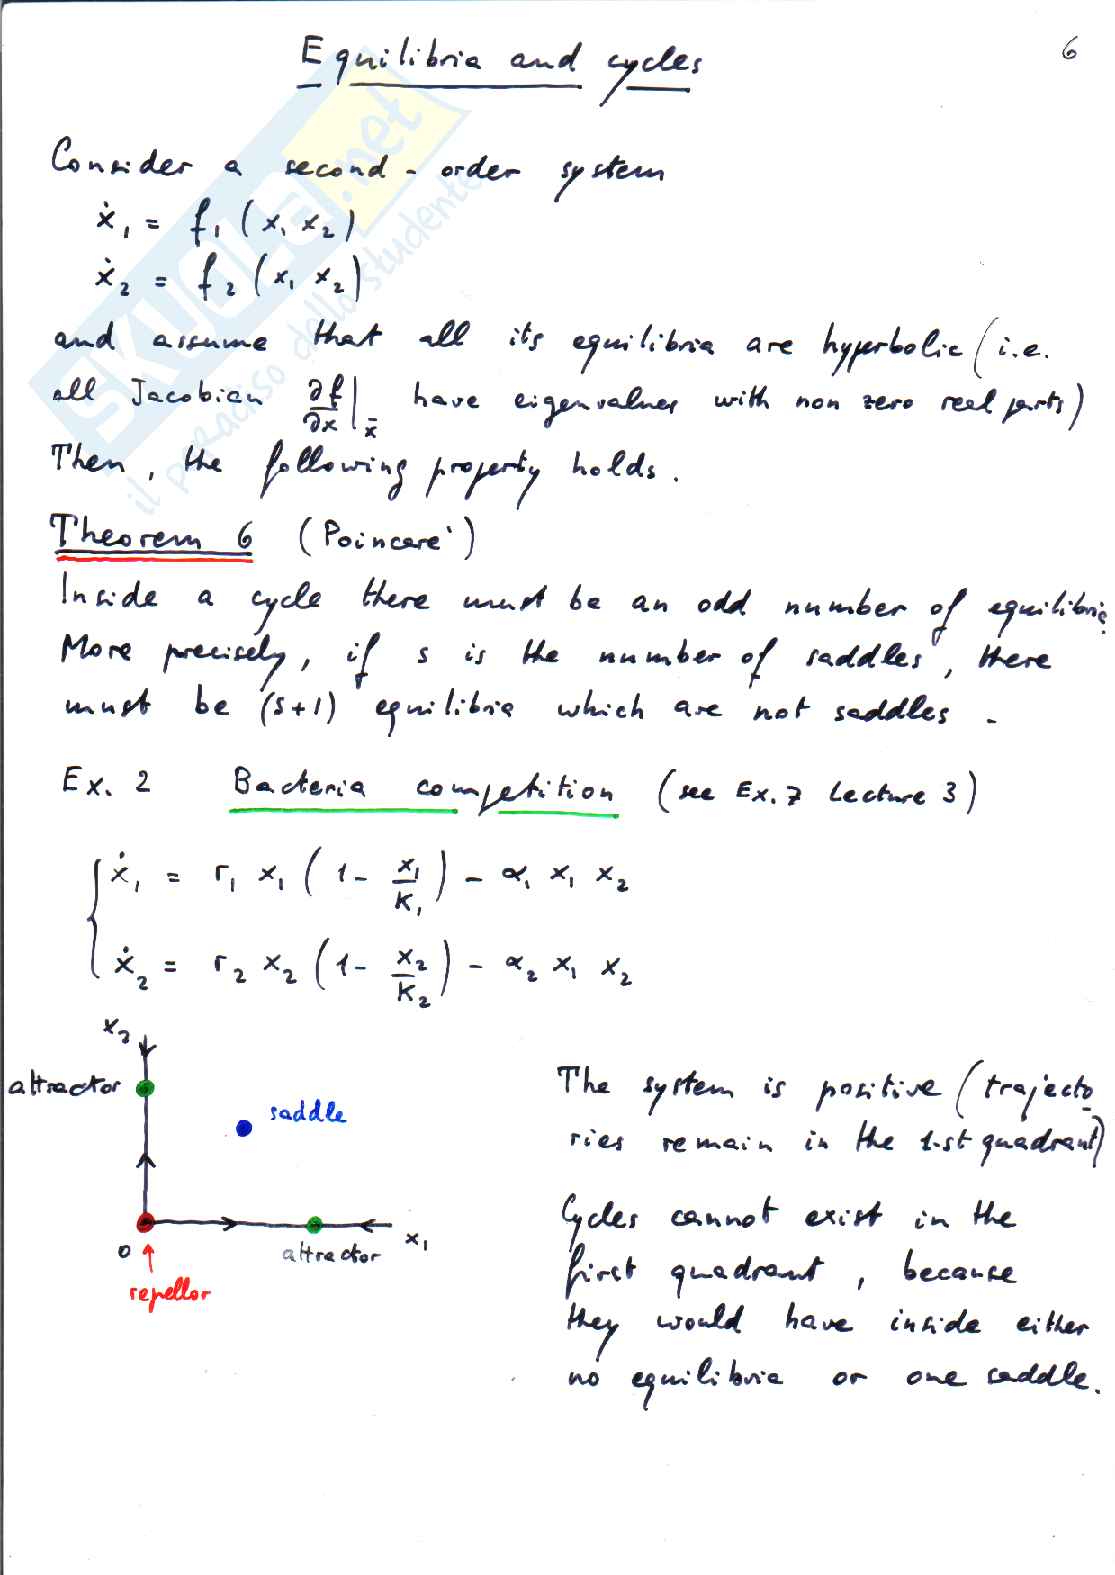 Equilibria and cycles
6
Consider a second-order system
ẋ₁ = f₁ (x₁ x₂)
ẋ₂ = f₂ (x₁ x₂)
and assume that all its equilibria are hyperbolic (i.e.
all Jacobian ∂f/∂x|x̄ have eigenvalues with non zero real parts)
Then, the following property holds.
Theorem 6 (Poincare')
Inside a cycle there must be an odd number of equilibria.
More precisely, if s is the number of saddles, there
must be (s+1) equilibria which are not saddles.
Ex. 2 Bacteria competition (see Ex. 7 Lecture 3)
ẋ₁ = r₁ x₁ (1 - x₁/K₁) - α₁ x₁ x₂
ẋ₂ = r₂ x₂ (1 - x₂/K₂) - α₂ x₁ x₂
x₂
attractor
saddle
0
attractor
x₁
repellor
The system is positive (trajecto-
ries remain in the 1-st quadrant)
Cycles cannot exist in the
first quadrant, because
they would have inside either
no equilibria or one saddle.
SKUOLA.net
il paradiso dello studente